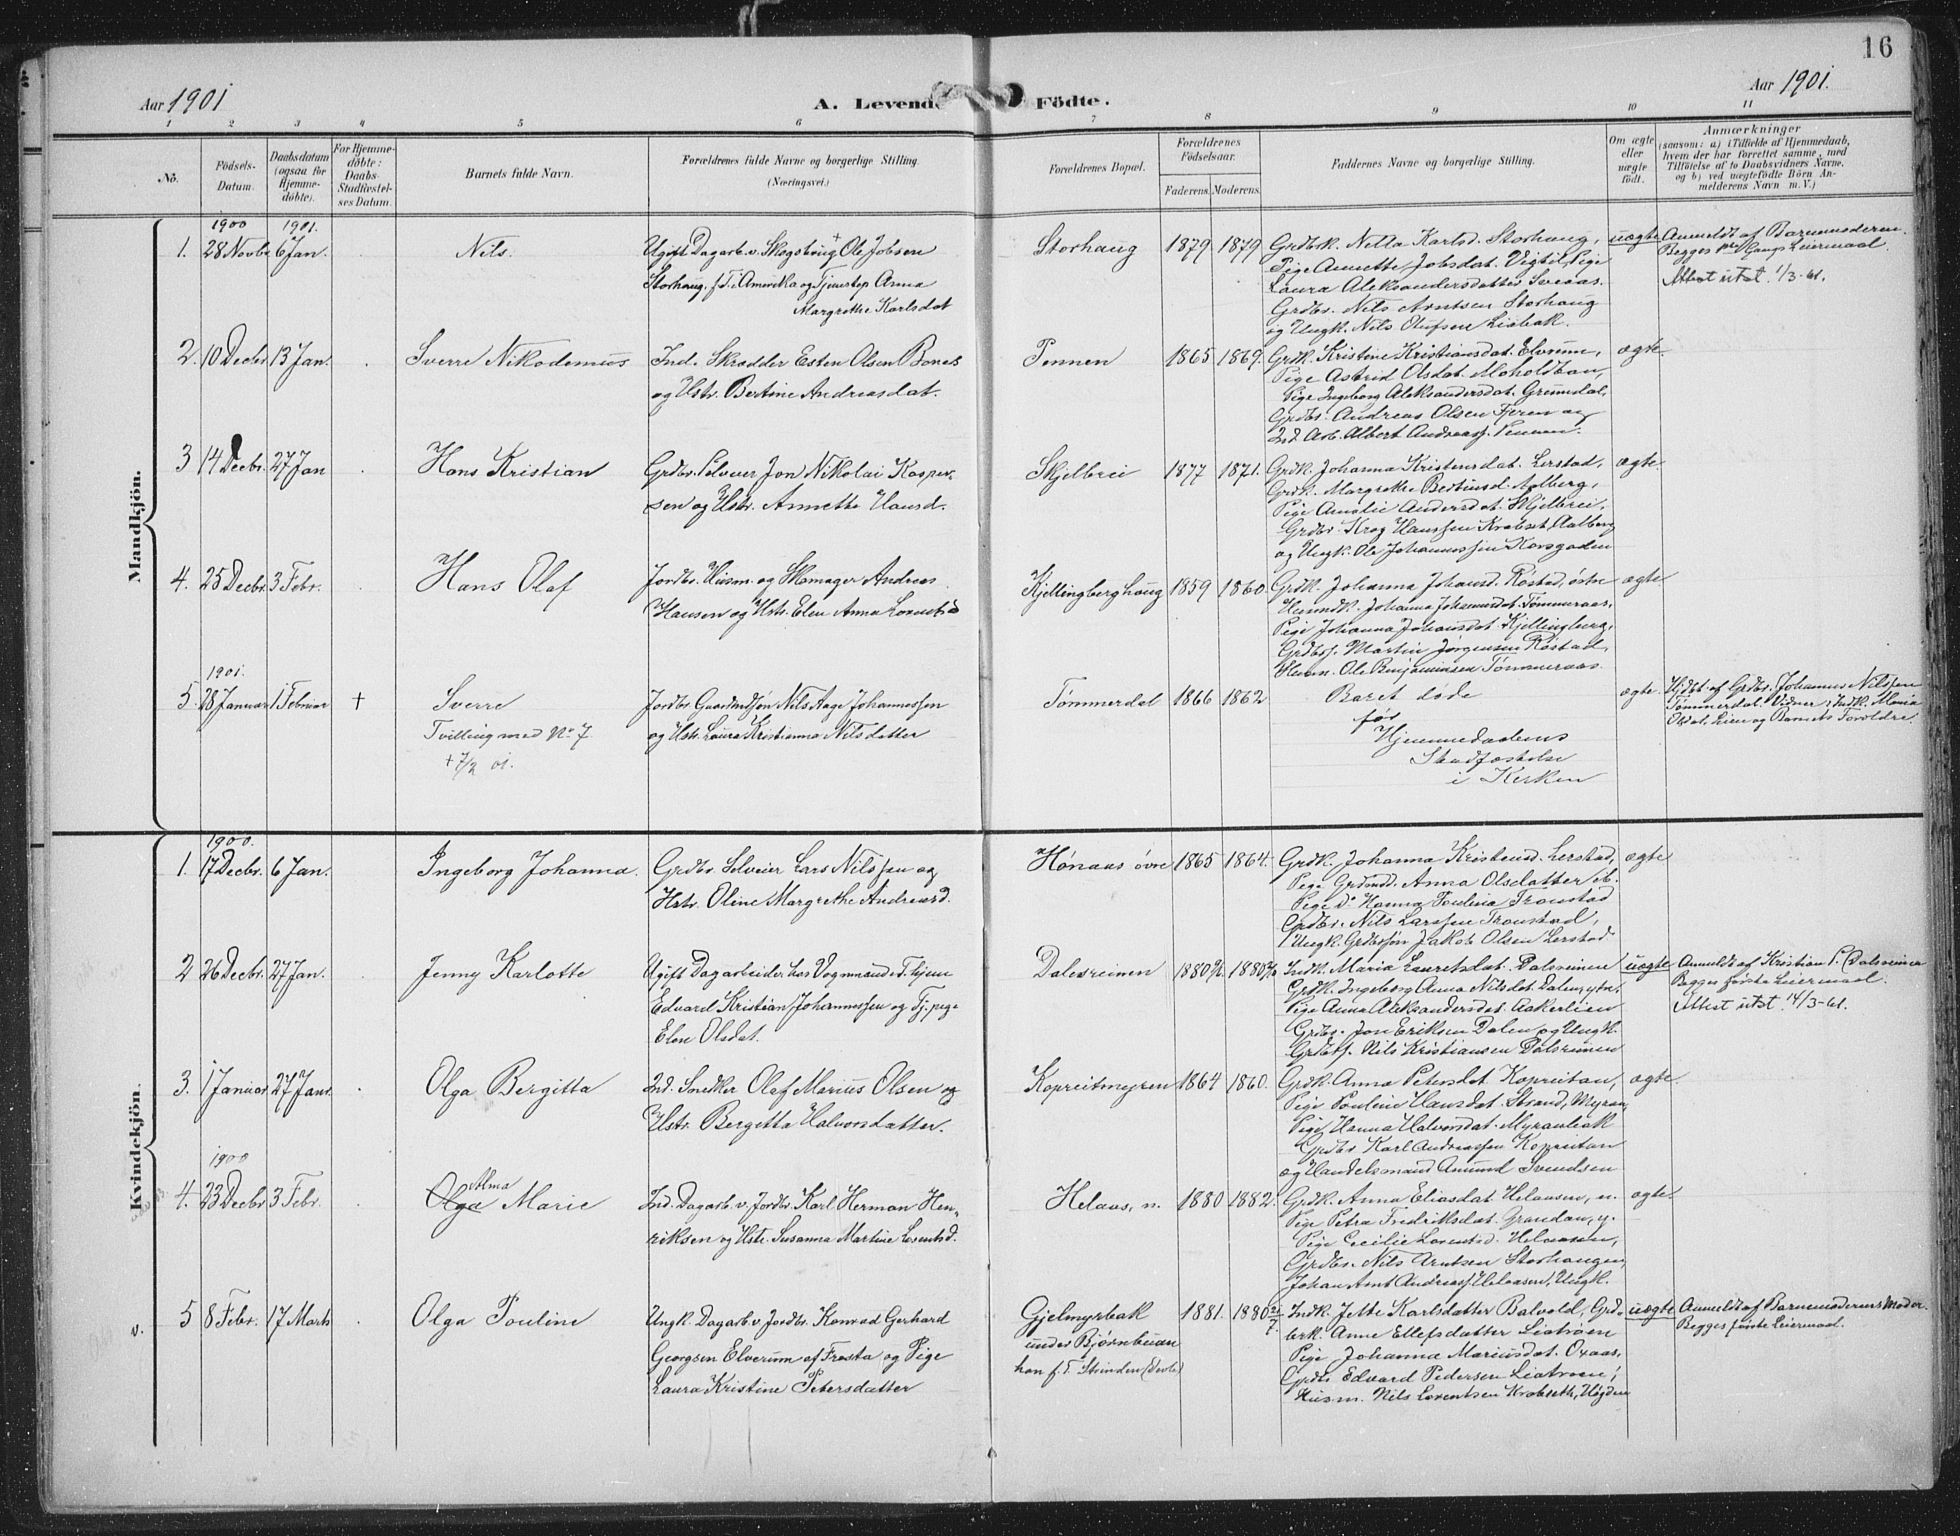 16
Aar 1901
A. Levende Födte.
Aar 1901.
1 2 3 4 5 6 7 8 9 10 11
No.
Födsels-Datum.
Daabsdatum (ogsaa for Hjemme-döbte).
For Hjemme-döbte: Daabs-Stadfæstel-ses Datum.
Barnets fulde Navn.
Forældrenes fulde Navne og borgerlige Stilling.
(Næringsvei.)
Forældrenes Bopæl.
Forældrenes Födselsaar.
Faderens. Moderens.
Faddernes Navne og borgerlige Stilling.
Om ægte eller uægte födt.
Anmærkninger
(saasom: a) i Tilfælde af Hjemmedaab,
hvem der har forrettet samme, med
Tilföielse af to Daabsvidners Navne,
og b) ved uægtefödte Börn An-
melderens Navn m. V.)
Mandkjön.
1900 1901.
1. 28 Novbr 6 Jan. Nils.
Ugift Dagarb. v. Skogsbrug Ole Jobsen
Storhaug, f. T. i Amerika og Tjenestep Anna
Margrethe Karlsdat
Storhaug 1879 1879
Grdbrk. Netta Karlsd. Storhaug,
Pige Annette Jobsdat. Vigtil, Pige
Laura Aleksandersdatter Sveaas.
Grdbr. Nils Arntsen Storhaug
og Ungk. Nils Olufsen Liabak.
uægte
Anmeldt af Barnemoderen.
Begges 1ste Gangs Leiermaal
Attest utst. 1/3-61.
2. 10 Decbr 13 Jan. Sverre Nikodemus
Ind. Skrædder Esten Olsen Bones
og Hstr. Bertine Andreasdat.
Pennen 1865 1869.
Grdk. Kristine Kristiansdat. Elvrum,
Pige Astrid Olsdat. Moholdtan,
Pige Ingeborg Aleksandersdat. Grunndal,
Grdbr. Andreas Olsen Fjeren og
Ind. Arb. Albert Andreasf. Pennen.
ægte
3 14 Decbr. 27 Jan Hans Kristian
Grdbr. Selveier Jon Nikolai Kasper-
sen og Hstr. Annette Hansd.
Skjelbrei 1877 1871.
Grdk. Johanna Kristensdat. Lerstad,
Grdk. Margrethe Bertinusd. Aalberg,
Pige Amalie Andersdat. Skjelbrei,
Grdbr. Krog Hanssen Krobset, Aalberg
og Ungk. Ole Johannessen Korsgaden
ægte
4. 25 Decbr. 3 Febr. Hans Olaf
Jordbr. Husm. og Skomager Andreas
Hansen og Hstr. Elen Anna Lorntsd
Kjellingberghaug 1859 1860.
Grdk. Johanna Johansd. Røstad, østre
Husmdk. Johanna Johannesdat. Tømmeraas,
Pige Johanna Johansdat. Kjellingberg,
Grdbrs. Martin Jørgensen Røstad,
Husm. Ole Benjaminsen Tømmeraas
ægte
1901.
5. 28 Januar 1 Februar + Sverre
Tvilling med No 7
+ 7/2 01.
Jordbr. Gaardmdsøn Nils Aage Johannessen
og Hstr. Laura Kristianna Nilsdatter
Tømmerdal 1866 1862
Baret døde
før
Hjemmedaabens
Stadfæstelse
i Kirken
ægte
Hjdbt. af Grdbr. Johannes Nilssen
Tømmerdal. Vidner: Indk. Maria
Olsdat. Lien og Barnets Forældre.
Kvindekjön.
1900.
1. 17 Decbr. 6 Jan. Ingeborg Johanna.
Grdbr. Selveier Lars Nilssen og
Hstr. Oline Margrethe Andreasd.
Hønaas øvre 1865 1864.
Grdk. Johanna Kristensd. Lerstad,
Pige Grdmdd. Anna Olsdatter ib.
Pige Do Hanna Poulina Tronstad
Grdbr. Nils Larssen Tronstad,
Ungk. Grdbrsøn Jakob Olsen Lerstad
ægte
2 26 Decbr. 27 Jan. Jenny Karlotte
Ugift Dagarbeider hos Vognmand i Thjem
Edvard Kristian Johannessen og Tj.pige
Elen Olsdat.
Dalesreinen 1880 1880
Indk. Maria Lauretsdat. Dalsreinen
Grdk. Ingeborg Anna Nilsdat Dalen, ytr.
Pige Anna Aleksandersdat. Aakerlien
Grdbr. Jon Eriksen Dalen og Ungk.
Grdbrs. Nils Kristiansen Dalsreinen
uægte
Anmeldt af Kristian P. Dalsreinen
Begges første Leiermaal.
Attest utst. 14/3-61.
3. 1 Januar 27 Janr. Olga Bergitta
Ind. Snedker Olaf Marius Olsen og
Hstr. Bergitta Halvorsdatter.
Kopreitmyren 1864 1860.
Grdk. Anna Petersdat Kopreitan,
Pige Pouline Hansdat. Strand, Myran,
Pige Hanna Halvorsdat. Myranleak
Grdbr Karl Andreassen Kopreitan
og Handelsmand Amund Svendsen
ægte
1900
4. 23 Decbr 3 Febr. Olga Alma Marie
Ind. Dagarb. v. Jordbr. Karl Herman Hen-
riksen og Hstr. Susanna Martine Lorntsd.
Helaas, n. 1880 1882.
Grdk. Anna Eliasdat. Helaasen, n.
Pige Petra Fredriksdat. Grandan, y.
Pige Cecilie Lorentsd. Helaasen,
Grdbr. Nils Arntsen Storhaugen,
Johan Arnt Andreass. Helaasen, Ungk.
ægte
v. 5 8 Febr. 17 Marts Olga Pouline
Ungk. Dagarb. v. Jordbr. Konrad Gerhard
Georgsen Elverum af Frosta og Pige
Laura Kristine Petersdatter
Gjelmyrbak
under Bjørnbuan
han f. T. Strinden (Devle)
1881. 1880 21/7.
Indk. Jette Karlsdatter Balvold, Grd-
brk. Anne Ellefsdatter Liatrøen
Pige Johanna Mariusdat. Oxaas,
Grdbr Edvard Pedersen Liatrøen,
Husm. Nils Lorentsen Krobseth, Høgden
uægte
Anmeldt af Barnemoderens Moder.
Begges første Leiermaal.